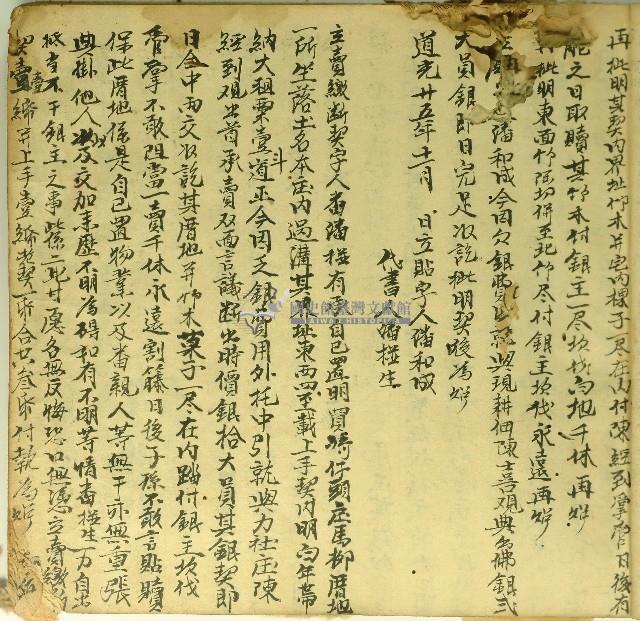 再批明其契內界址竹木并宅內檨子一尽在內付陳經到掌管日後有
能之日取贖其竹木付銀主一尽砍伐向地千休再炤
批明東面竹除切併至北竹尽付銀主砍伐永遠再炤
潘和成今因欠銀費用託與現耕佃陳士喜观典出佛銀弍
大員銀即日完足收訖批明契後為炤
道光廿五年十二月 日立貼字人潘和成
代書潘檨生
立賣繳斷契字人番潘檨有自己置明買埼仔頭庄馬柳厝地
一所坐落土名本庄內過溝其東西四至載上手契內明向年帶
納大租粟壹斗道正今因乏銀費用外托中引就與力社庄陳
經到观出首承賣双面言議断出時價銀拾大員其銀契即
日仝中両交收訖其厝地并竹木菓子一尽在內踏付銀主砍伐
管掌不敢阻當一賣千休永遠割籐日後子孫不敢言貼贖
保此厝地係是自己置物業以及番親人等無干亦無重張
典掛他人以及交加来歷不明為碍和有不明等情番檨生一力自出
抵當不干銀主之事此係二比甘愿各無反悔恐口無憑立賣繳断
契壹紙并上手壹紙契一尽合共叁尽付執為炤
國史館臺灣文獻館
TAIWAN HISTORICA